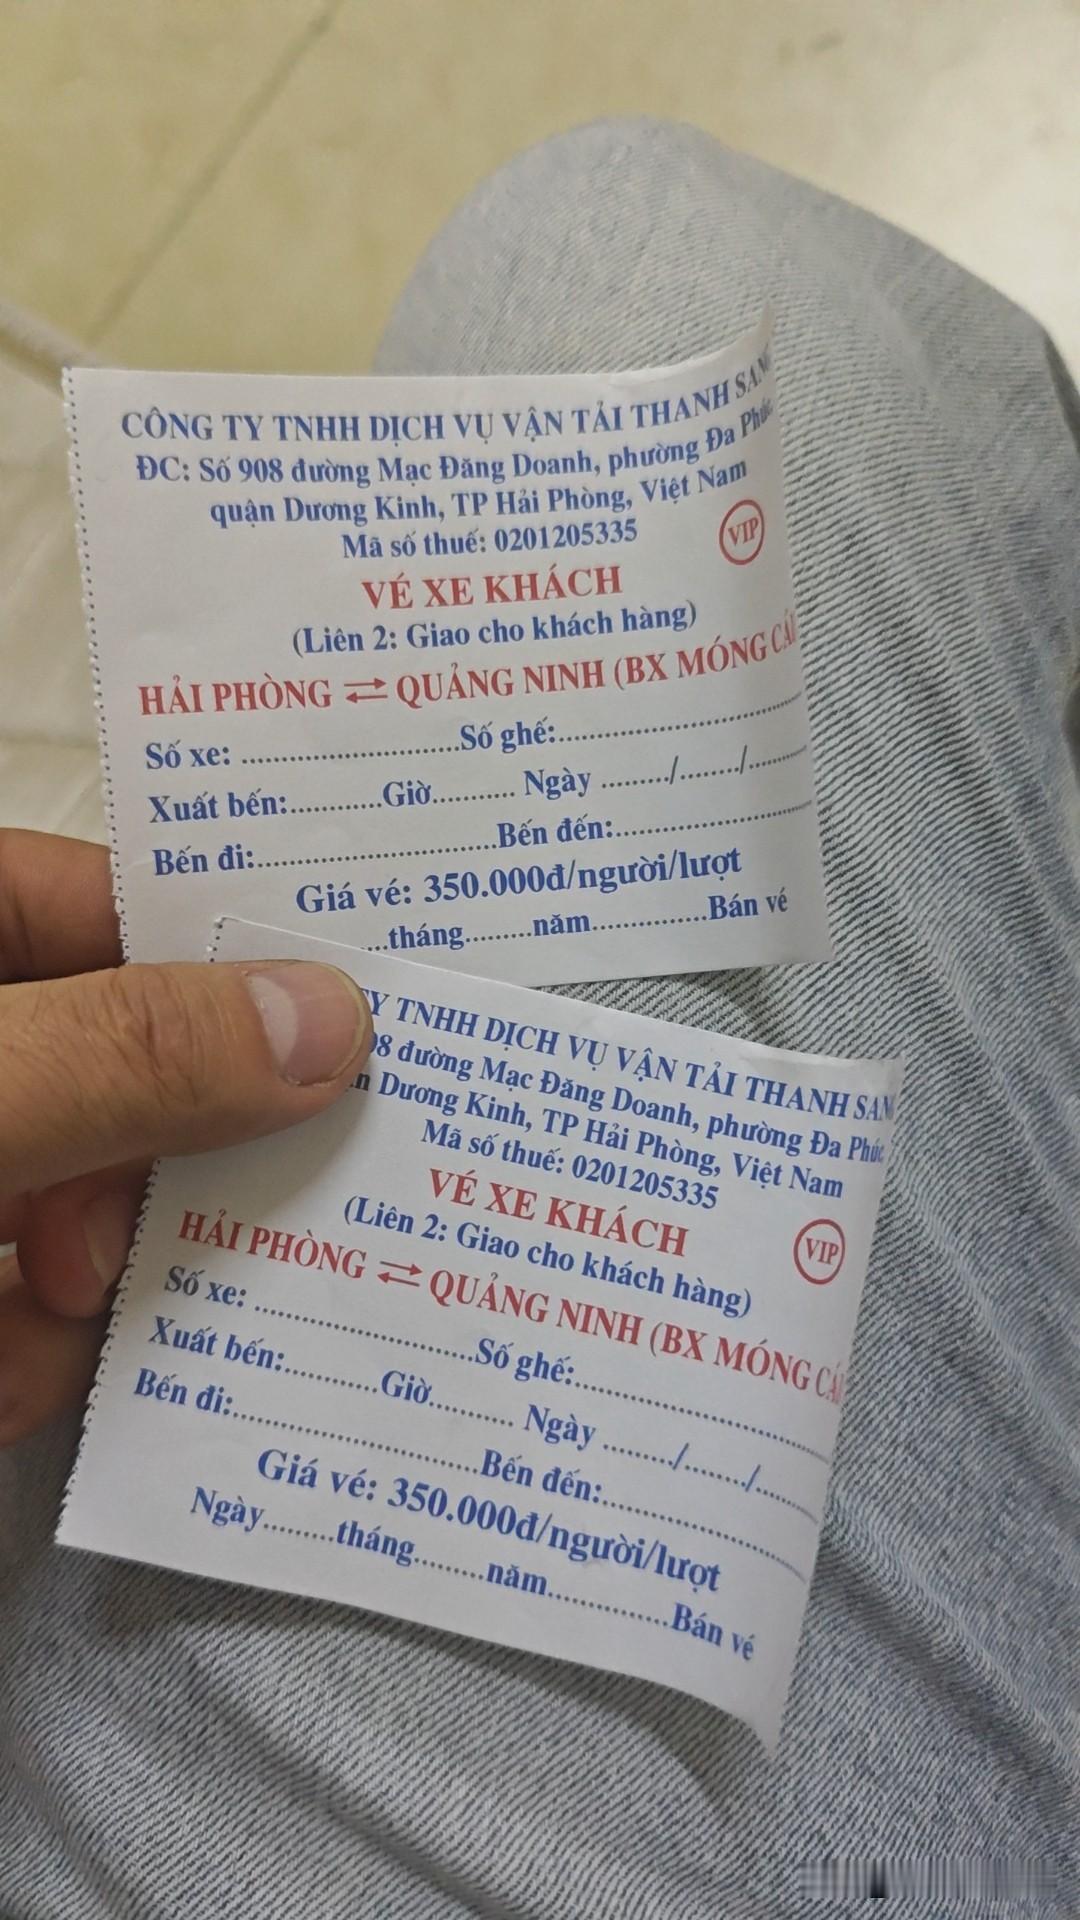 CÔNG TY TNHH DỊCH VỤ VẬN TẢI THANH SAN
ĐC: Số 908 đường Mạc Đăng Doanh, phường Đa Phúc
quận Dương Kinh, TP Hải Phòng, Việt Nam
Mã số thuế: 0201205335
VIP
VÉ XE KHÁCH
(Liên 2: Giao cho khách hàng)
HẢI PHÒNG ⇄ QUẢNG NINH (BX MÓNG CÁI
Số xe: ........................Số ghế:...........................
Xuất bến:..........Giờ......... Ngày ......../......../........
Bến đi:..........................Bến đến:......................
Giá vé: 350.000đ/người/lượt
...tháng........năm.............Bán vé
TY TNHH DỊCH VỤ VẬN TẢI THANH SAN
08 đường Mạc Đăng Doanh, phường Đa Phúc
n Dương Kinh, TP Hải Phòng, Việt Nam
Mã số thuế: 0201205335
VÉ XE KHÁCH
VIP
(Liên 2: Giao cho khách hàng)
HẢI PHÒNG ⇄ QUẢNG NINH (BX MÓNG CÁI
Số xe: ........................Số ghế:...........................
Xuất bến:..........Giờ......... Ngày ......../......../........
Bến đi:..........................Bến đến:......................
Giá vé: 350.000đ/người/lượt
Ngày........tháng........năm.............Bán vé